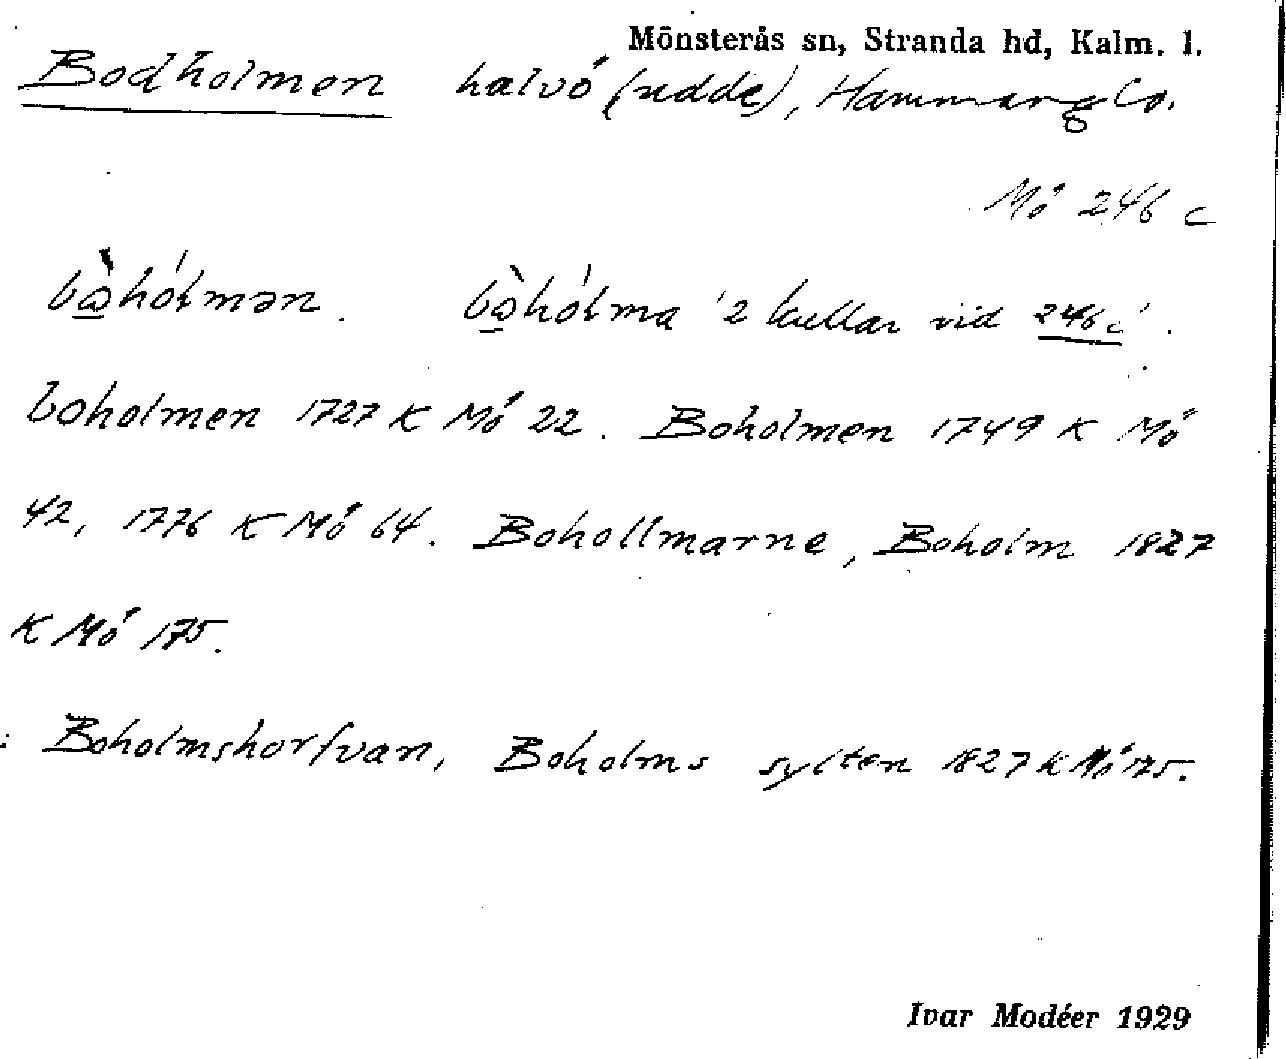 Mönsterås sn, Stranda hd, Kalm. l.
Bodholmen halvö (udde), Hammarglo.
Mö 246 c
bὼhólmən. bὼhólma '2 kullar vid 246 c'.
boholmen 1727 K Mö 22. Boholmen 1749 K Mö
42, 1776 K Mö 64. Bohollmarne, Boholm 1827
K Mö 175.
: Boholmshorfvan, Boholms sylten 1827 K Mö 175.
Ivar Modéer 1929